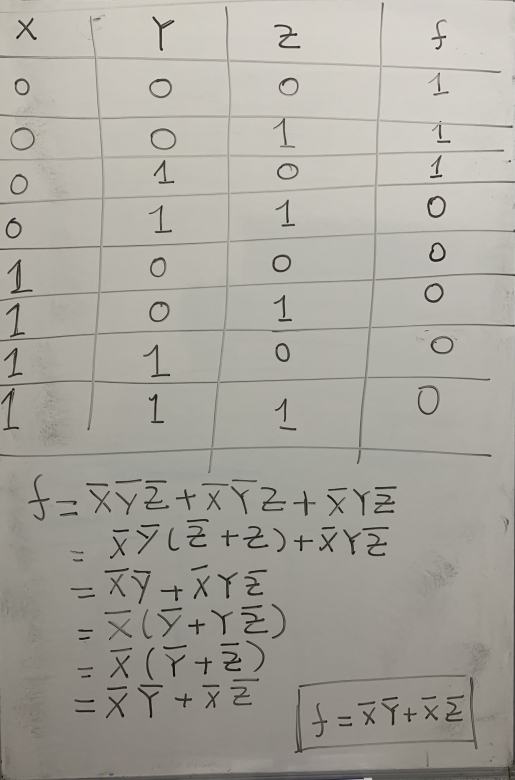 X Y Z f
0 0 0 1
0 0 1 1
0 1 0 1
0 1 1 0
1 0 0 0
1 0 1 0
1 1 0 0
1 1 1 0
f = X̅Y̅Z̅ + X̅Y̅Z + X̅YZ̅
= X̅Y̅(Z̅ + Z) + X̅YZ̅
= X̅Y̅ + X̅YZ̅
= X̅(Y̅ + YZ̅)
= X̅(Y̅ + Z̅)
= X̅Y̅ + X̅Z̅
f = X̅Y̅ + X̅Z̅